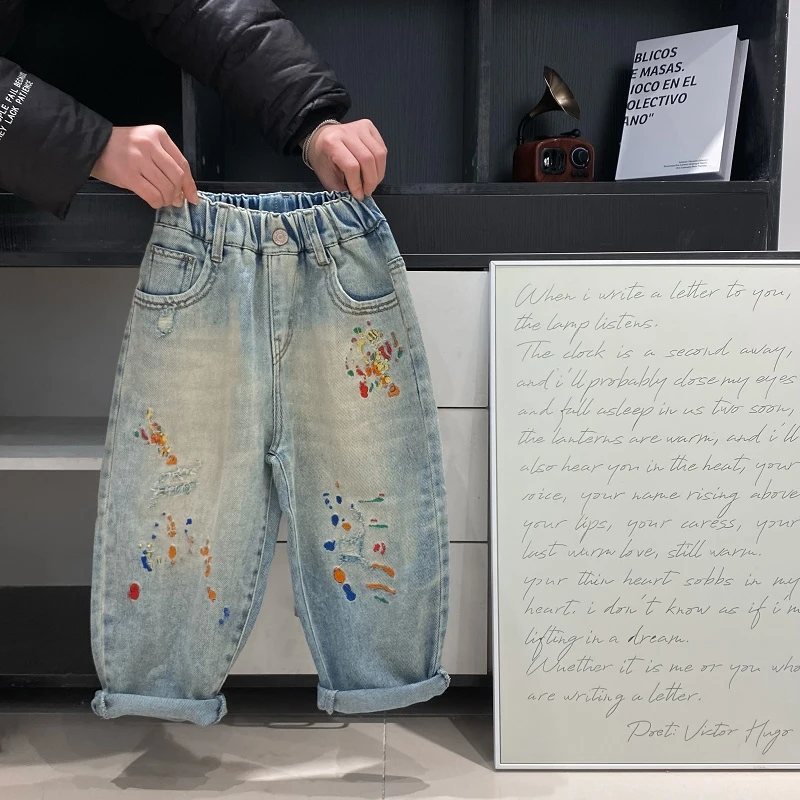 PLE FAIL BECAUSE
HEY LACK PATIENCE
BLICOS
E MASAS.
IOCO EN EL
OLECTIVO
ANO"
When i write a letter to you,
the lamp listens.
The clock is a second away,
and i'll probably close my eyes
and fall asleep in us two soon,
the lanterns are warm, and i'll
also hear you in the heat, your
voice, your name rising above
your lips, your caress, your
last warm love, still warm.
your thin heart sobbs in my
heart. i don't know as if i'm
lifting in a dream.
Whether it is me or you who
are writing a letter.
Poet: Victor Hugo